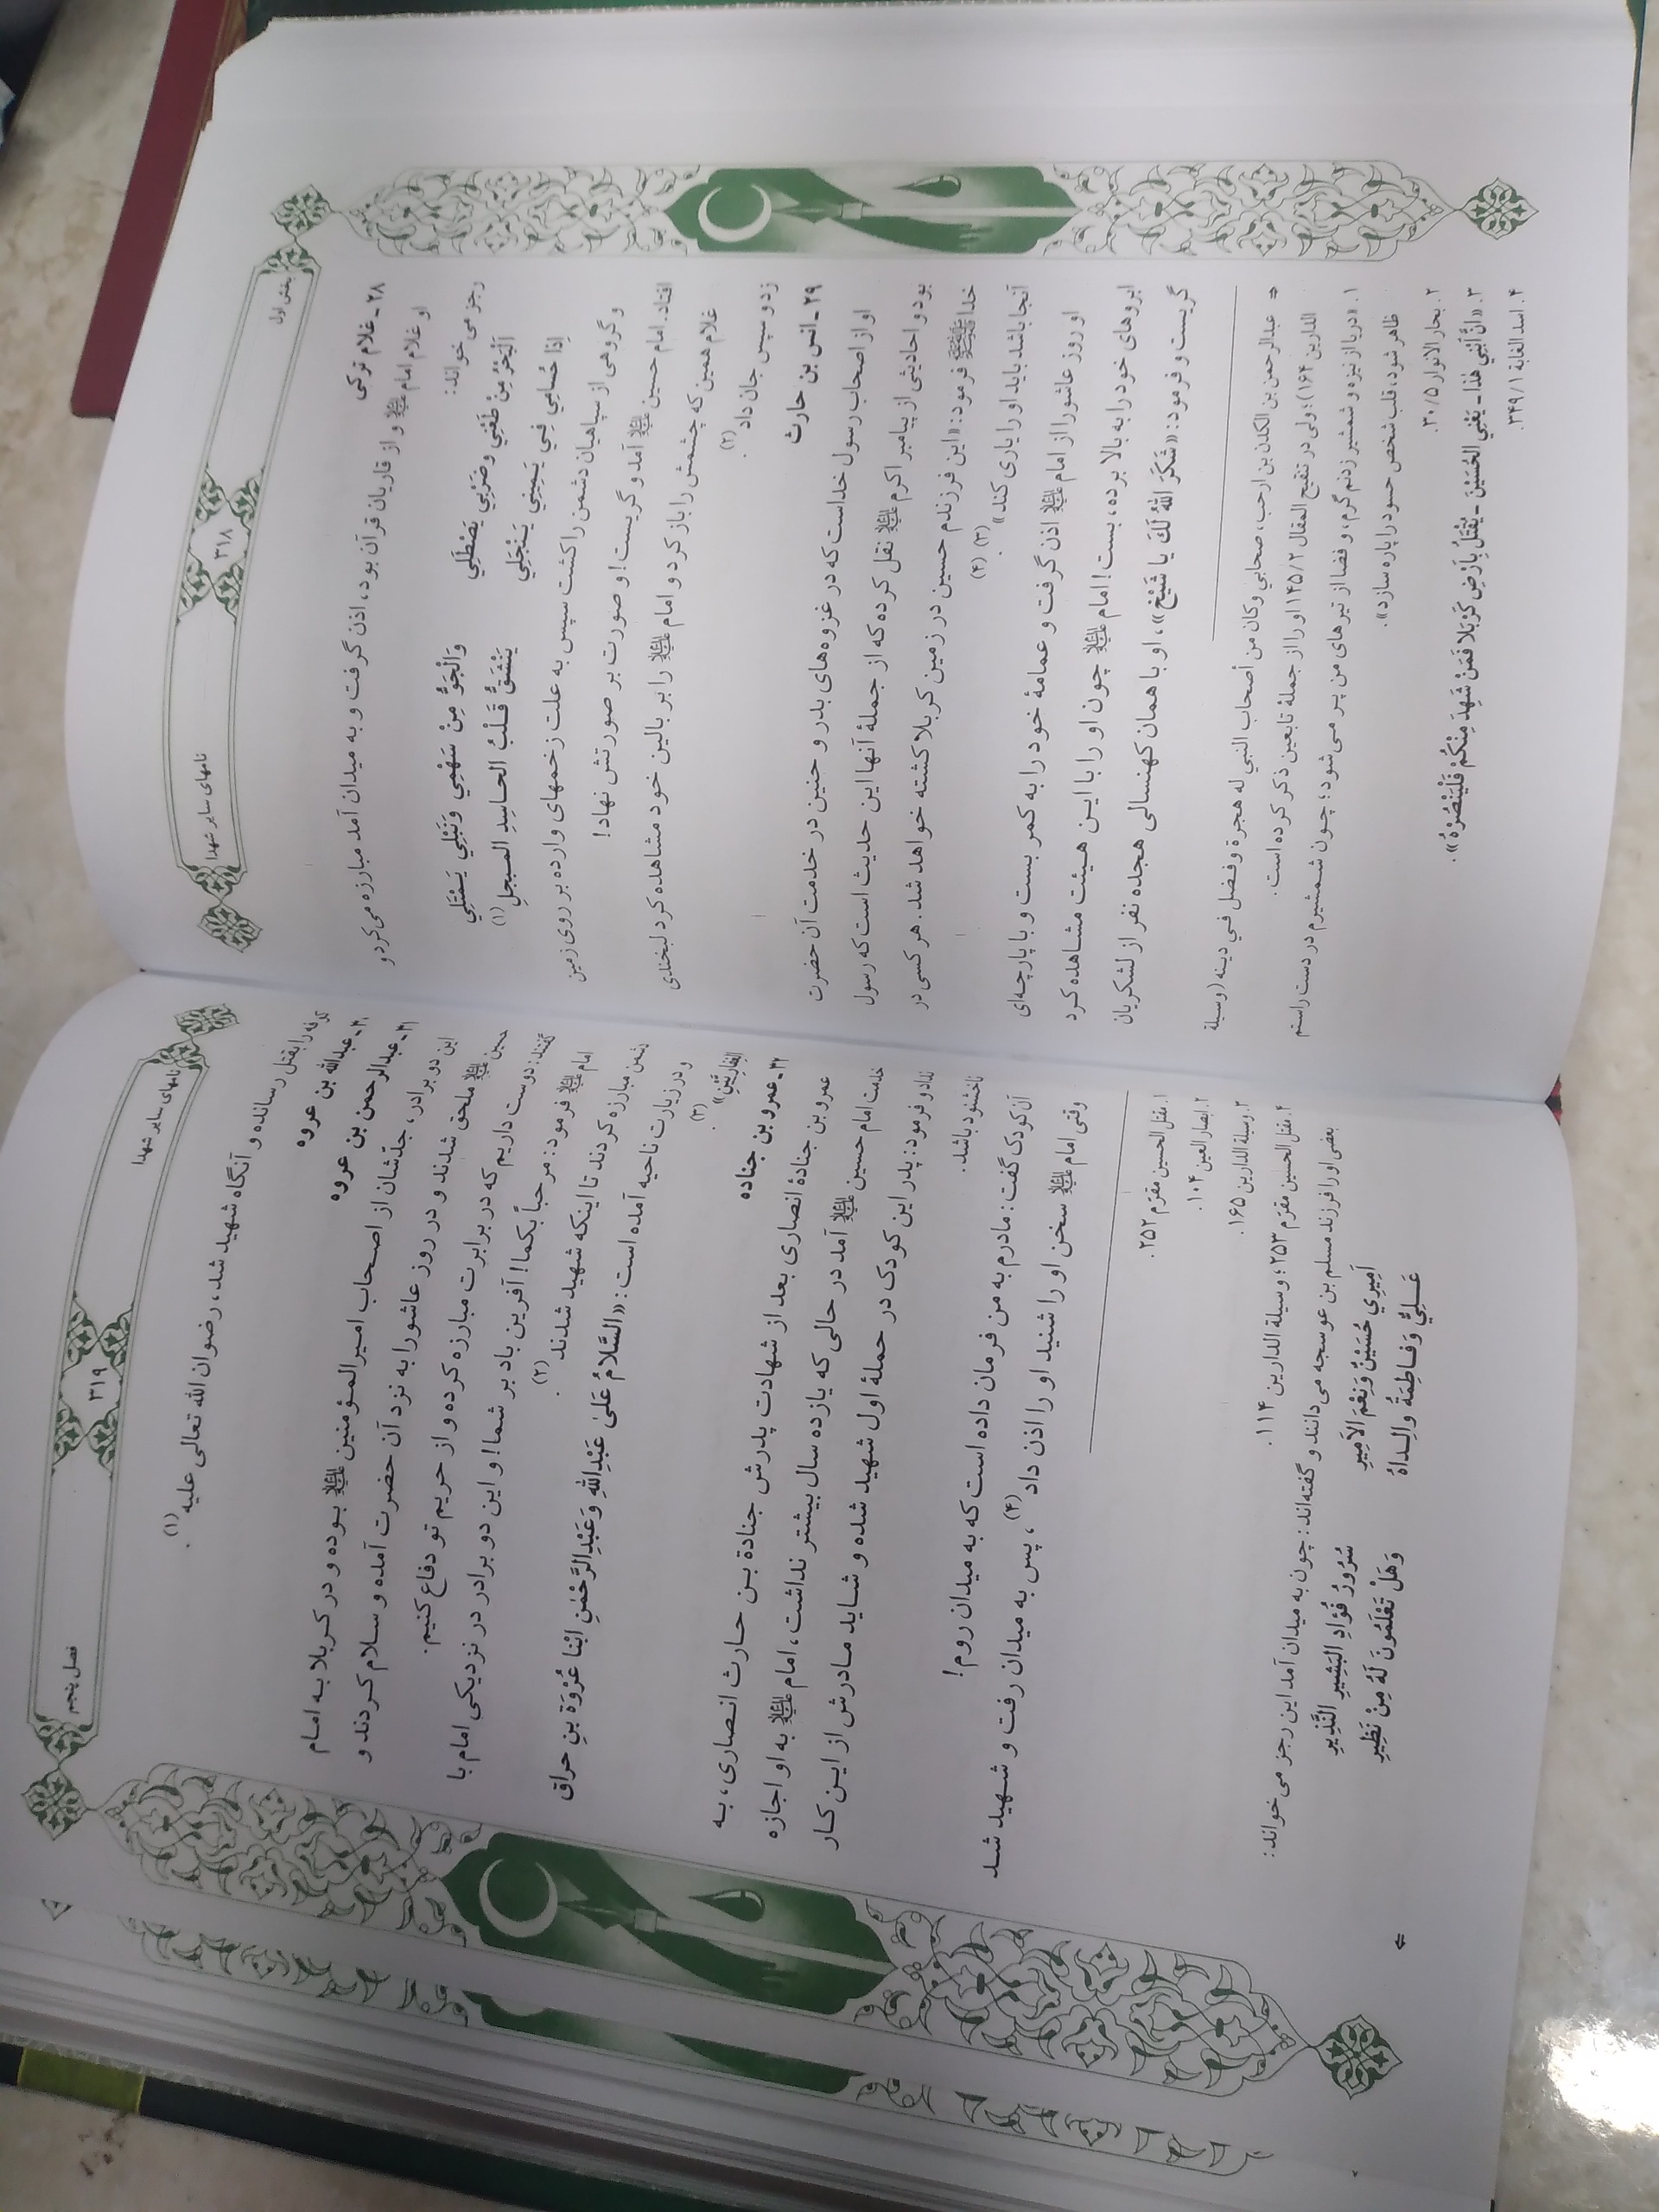 بخش اول
۳۱۸
نامهای سایر شهدا
۲۸ ـ غلام ترکی
او غلام امام ﷷ و از قاریان قرآن بود، اذن گرفت و به میدان آمد مبارزه می‌کرد و
رجز می خواند:
اَلْبَحْرُ مِنْ طَعْنِي وضَرْبِي يَصْطَلِي وَالْجَوُّ مِنْ سَهْمِي وَنَبْلِي يَمْتَلِي
إذا حُسامِي فِي يَمِينِي يَنْجَلِي يَنْشَقُّ قَلْبُ الحاسِدِ المبجلِ (۱)
و گروهی از سپاهیان دشمن را کشت سپس به علت زخمهای وارده بر روی زمین
افتاد. امام حسین ﷷ آمد و گریست! و صورت بر صورتش نهاد!
غلام همین که چشمش را باز کرد و امام ﷷ را بر بالین خود مشاهده کرد لبخندی
زد و سپس جان داد (۲).
۲۹ ـ انس بن حارث
او از اصحاب رسول خداست که در غزوه‌های بدر و حنین در خدمت آن حضرت
بود و احادیثی از پیامبر اکرم ﷺ نقل کرده که از جملهٔ آنها این حدیث است که رسول
خدا ﷺ فرمود: «این فرزندم حسین در زمین کربلا کشته خواهد شد. هر کسی در
آنجا باشد باید او را یاری کند» (۳) (۴)
او روز عاشورا از امام ﷷ اذن گرفت و عمامهٔ خود را به کمر بست و با پارچه‌ای
ابروهای خود را به بالا برده، بست! امام ﷷ چون او را با این هیئت مشاهده کرد
گریست و فرمود: «شَكَرَ اللهُ لَكَ يا شَيْخُ»، او با همان کهنسالی هجده نفر از لشکریان
⇨ عبدالرحمن بن الکدن بن ارحب، صحابي وکان من أصحاب النبي له هجرة وفضل في دینه (وسیلة
الدارین ۱۶۴)؛ ولی در تنقیح المقال ۱۴۵/۲ او را از جملهٔ تابعین ذکر کرده است.
۱. «دریا از نیزه و شمشیر زدنم گرم، و فضا از تیرهای من پر می شود؛ چون شمشیرم در دست راستم
ظاهر شود، قلب شخص حسود را پاره سازد».
۲. بحار الانوار ۳۰/۵.
۳. «انَّ ابْنِي هٰذا ـ يَعْنِي الحُسَيْنَ ـ يُقْتَلُ بِاَرْضِ كَرْبَلا فَمَنْ شَهِدَ مِنْكُمْ فَلْيَنْصُرْهُ».
۴. اسد الغابة ۳۴۹/۱.
نامهای سایر شهدا
۳۱۹
فصل پنجم
کوفه را بقتل رسانده و آنگاه شهید شد، رضوان الله تعالی علیه (۱).
۳۰ ـ عبدالله بن عروه
۳۱ ـ عبدالرحمن بن عروه
این دو برادر، جدّشان از اصحاب امیرالمؤمنین ﷷ بوده و در کربلا به امام
حسین ﷷ ملحق شدند و در روز عاشورا به نزد آن حضرت آمده و سلام کردند و
گفتند: دوست داریم که در برابرت مبارزه کرده و از حریم تو دفاع کنیم.
امام ﷷ فرمود: مرحباً بکما! آفرین باد بر شما! و این دو برادر در نزدیکی امام با
دشمن مبارزه کردند تا اینکه شهید شدند (۲).
و در زیارت ناحیه آمده است: «السَّلامُ عَلىٰ عَبْدِاللهِ وَعَبْدِالرَّحْمٰنِ ابْنا عُرْوَةَ بنِ حراق
الغِفارِيَّيْنِ» (۳).
۳۲ ـ عمرو بن جناده
عمرو بن جنادهٔ انصاری بعد از شهادت پدرش جنادة بن حارث انصاری، به
خدمت امام حسین ﷷ آمد در حالی که یازده سال بیشتر نداشت، امام ﷷ به او اجازه
نداد و فرمود: پدر این کودک در حملهٔ اول شهید شده و شاید مادرش از این کار
ناخشنود باشد.
آن کودک گفت: مادرم به من فرمان داده است که به میدان روم!
وقتی امام ﷷ سخن او را شنید او را اذن داد (۴)، پس به میدان رفت و شهید شد
۱. مقتل الحسین مقرّم ۲۵۲.
۲. ابصار العین ۱۰۴.
۳. وسیلة الدارین ۱۶۵.
۴. مقتل الحسین مقرّم ۲۵۳؛ وسیلة الدارین ۱۱۴.
بعضی او را فرزند مسلم بن عوسجه می دانند و گفته‌اند: چون به میدان آمد این رجز می خواند:
اَمِيرِي حُسَيْنٌ وَنِعْمَ الاَمِيرِ سُرُورُ فُؤَادِ البَشِيرِ النَّذِيرِ
عَـلِيٌّ وَفـاطِمَةُ والِـداهُ وَهَلْ تَعْلَمُونَ لَهُ مِنْ نَظِيرِ
⇦